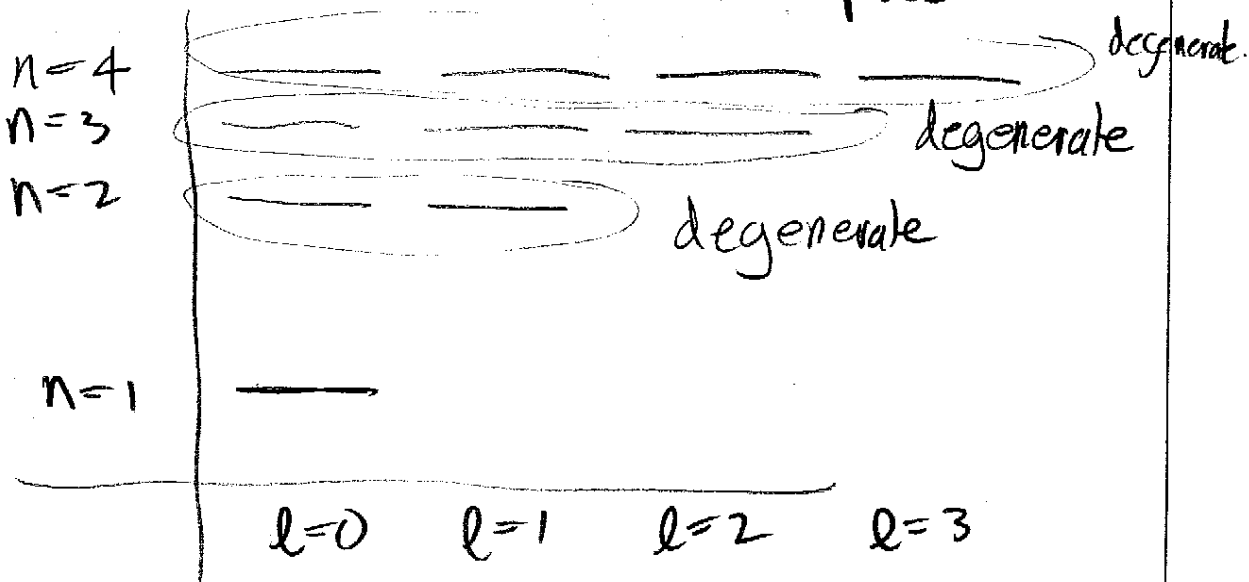 n=4 degenerate.
n=3 degenerate
n=2 degenerate
n=1
l=0 l=1 l=2 l=3